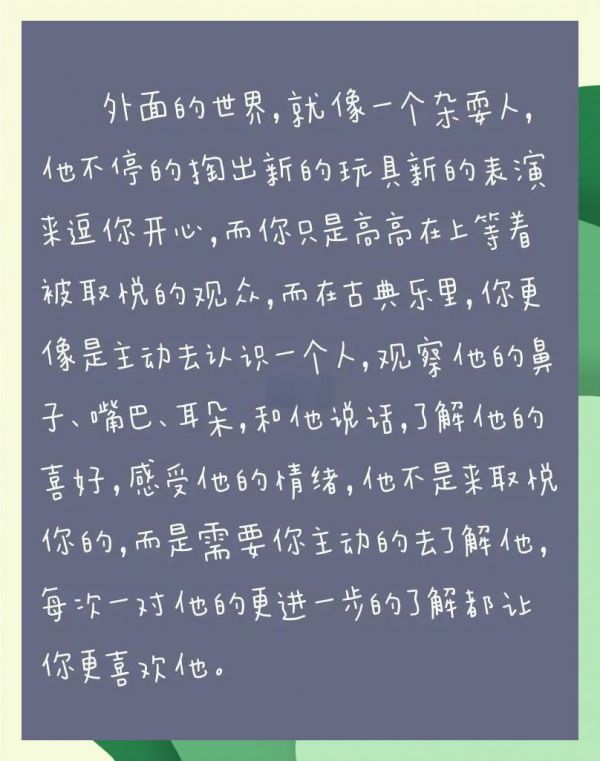 外面的世界,就像一个杂耍人,
他不停的掏出新的玩具新的表演
来逗你开心,而你只是高高在上等着
被取悦的观众,而在古典乐里,你更
像是主动去认识一个人,观察他的鼻
子、嘴巴、耳朵,和他说话,了解他的
喜好,感受他的情绪,他不是来取悦
你的,而是需要你主动的去了解他,
每次一对他的更进一步的了解都让
你更喜欢他。